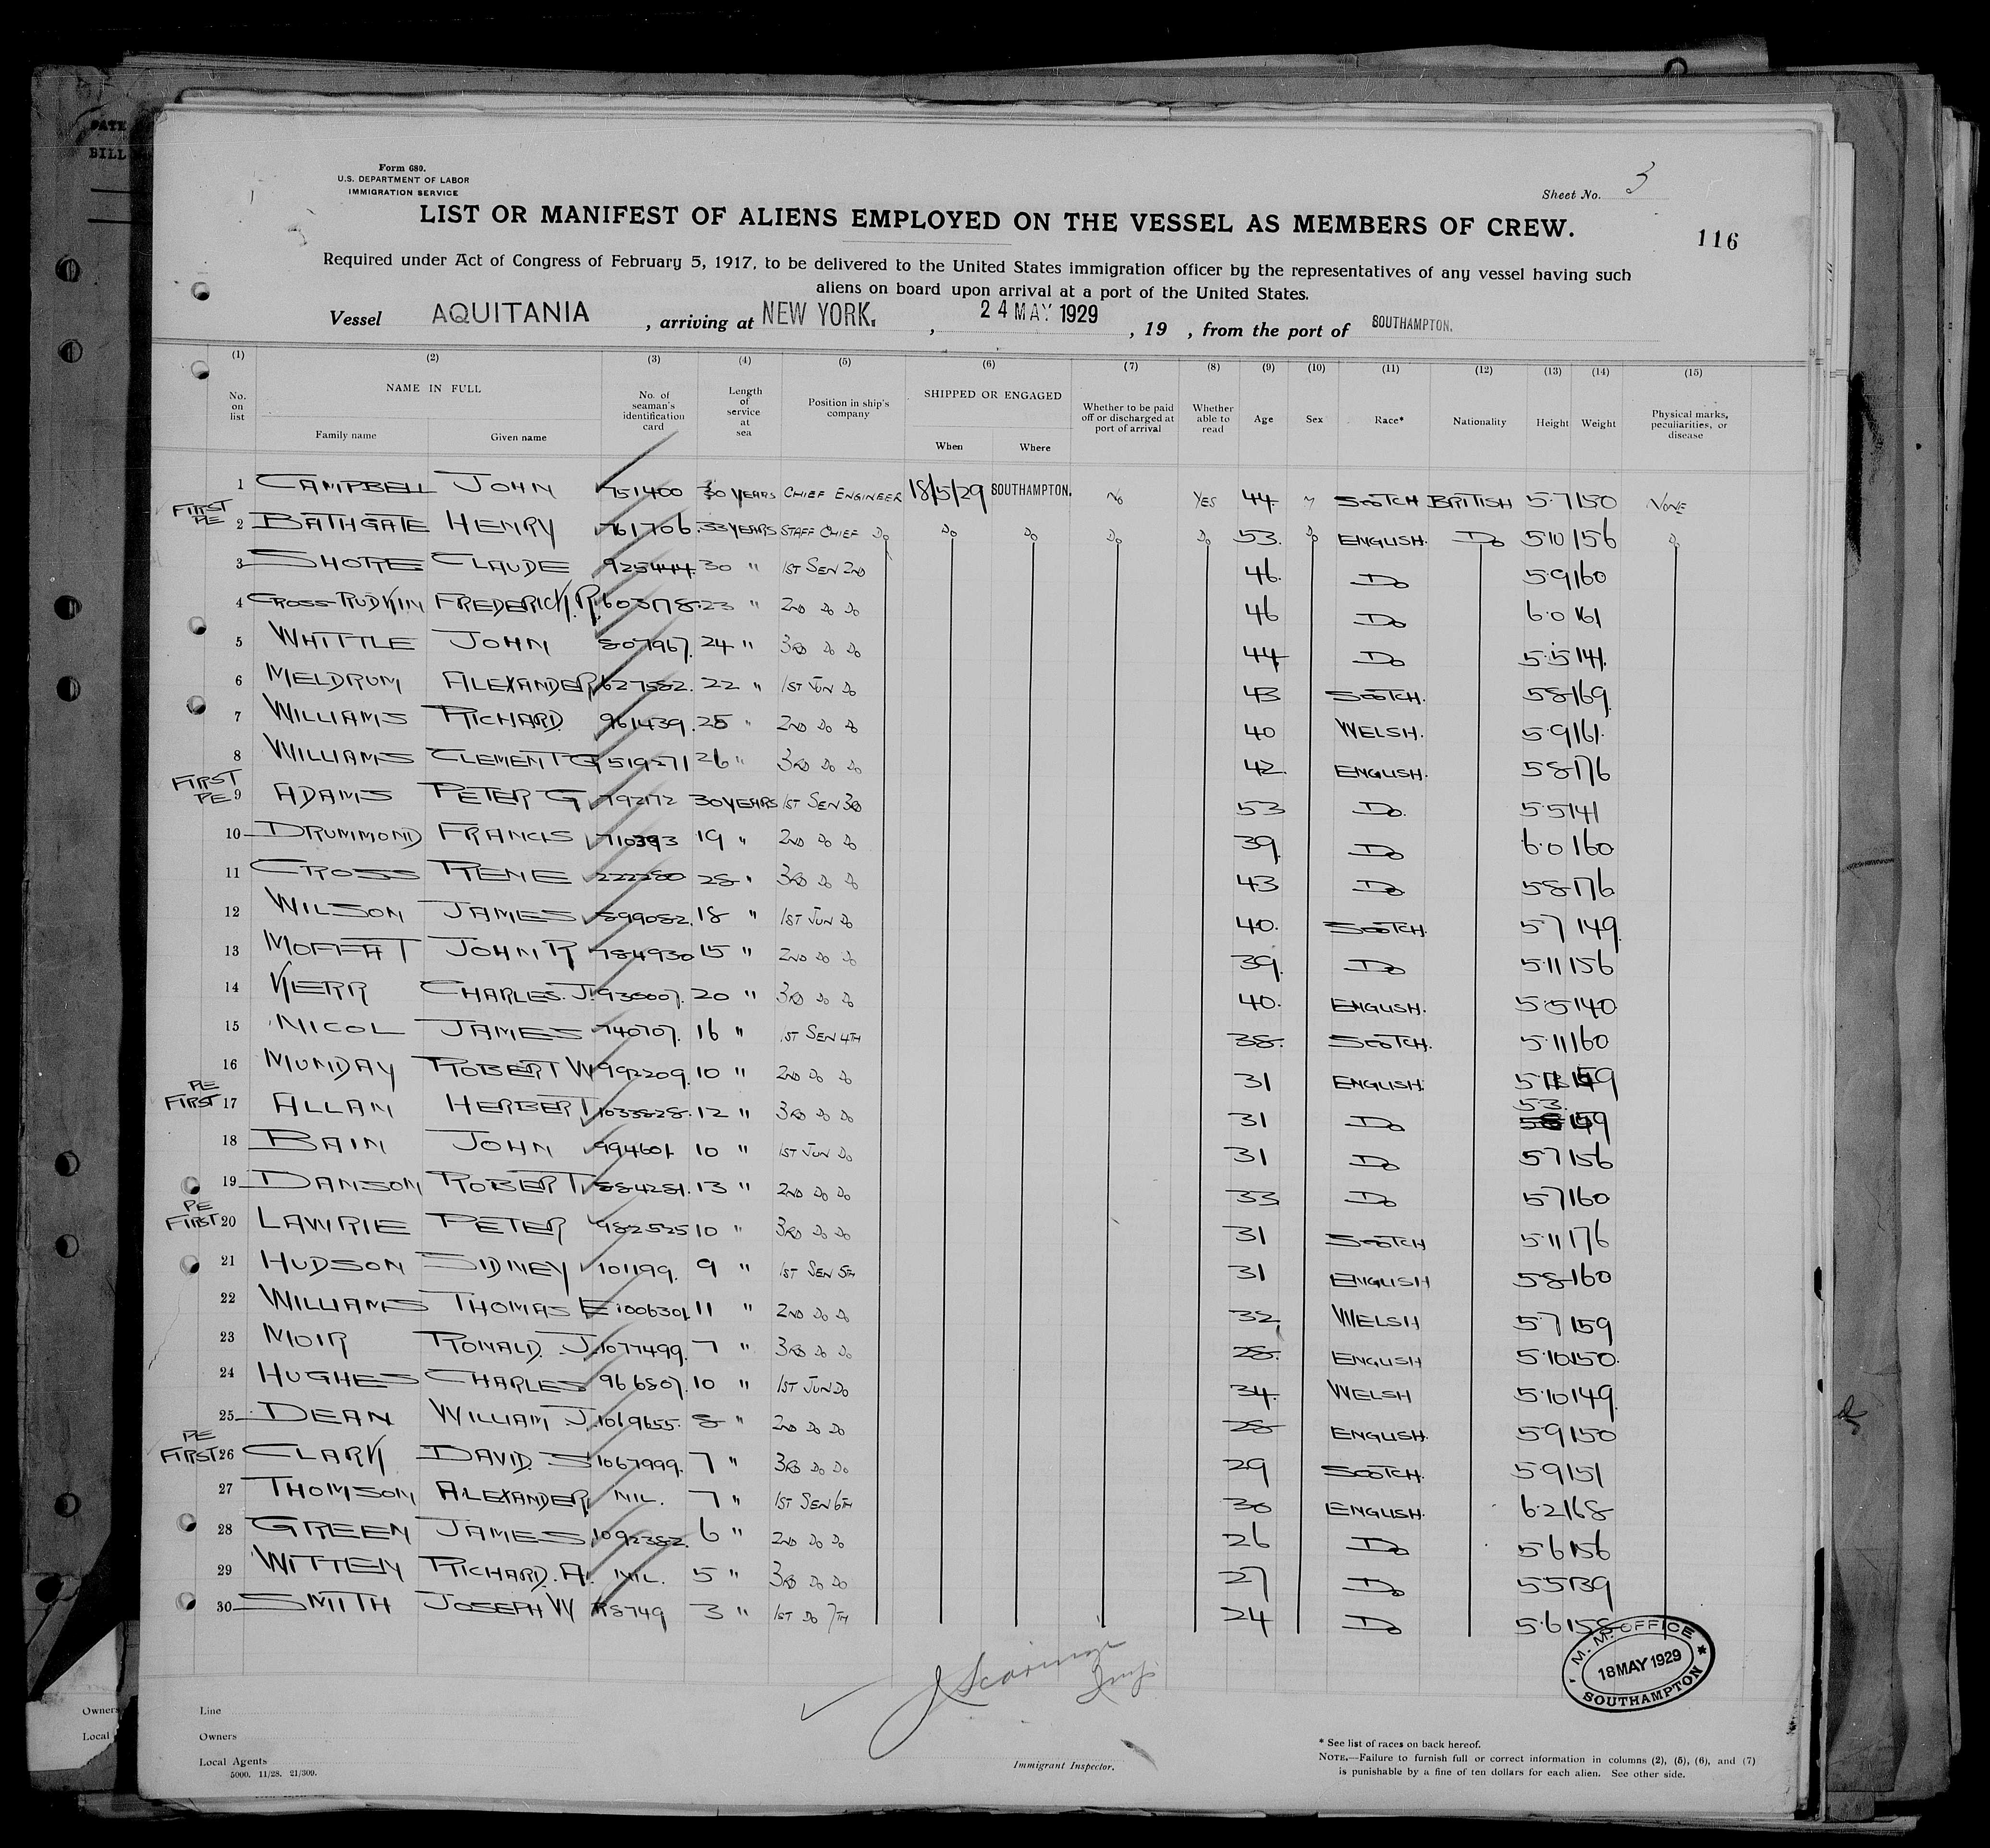 PATE
BILL
Form 680.
U.S. DEPARTMENT OF LABOR
IMMIGRATION SERVICE
Sheet No. 3
LIST OR MANIFEST OF ALIENS EMPLOYED ON THE VESSEL AS MEMBERS OF CREW.
116
Required under Act of Congress of February 5, 1917, to be delivered to the United States immigration officer by the representatives of any vessel having such
aliens on board upon arrival at a port of the United States.
Vessel AQUITANIA , arriving at NEW YORK. , 24 MAY 1929 , 19 , from the port of SOUTHAMPTON.
(1) (2) (3) (4) (5) (6) (7) (8) (9) (10) (11) (12) (13) (14) (15)
No. on list NAME IN FULL Family name Given name No. of seaman's identification card Length of service at sea Position in ship's company SHIPPED OR ENGAGED When Where Whether to be paid off or discharged at port of arrival Whether able to read Age Sex Race* Nationality Height Weight Physical marks, peculiarities, or disease
1 CAMPBELL JOHN 751400 30 YEARS CHIEF ENGINEER 18/5/29 SOUTHAMPTON. No YES 44 M SCOTCH BRITISH 5.7 150 NONE
FIRST PE 2 BATHGATE HENRY 761706 33 YEARS STAFF CHIEF Do Do Do Do Do 53. Do ENGLISH. Do 5.10 156 Do
3 SHORE CLAUDE 925444 30 " 1ST SEN 2ND 46. Do 5.9 160
4 CROSS-RUDKIN FREDERICK.R. 603778 23 " 2ND Do Do 46 Do 6.0 161
5 WHITTLE JOHN 807967. 24 " 3RD Do Do 44 Do 5.5 141.
6 MELDRUM ALEXANDER 627582. 22 " 1ST JUN Do 43 SCOTCH. 5.8 169
7 WILLIAMS RICHARD. 961439. 25 " 2ND Do Do 40 WELSH. 5.9 161.
8 WILLIAMS CLEMENT G 519271 26 " 3RD Do Do 42. ENGLISH. 5.8 176
FIRST PE 9 ADAMS PETER G 792172 30 YEARS 1ST SEN 3RD 53 Do. 5.5 141
10 DRUMMOND FRANCIS 710393 19 " 2ND Do Do 39. Do 6.0 160
11 CROSS RENE 222280 28 " 3RD Do Do 43 Do 5.8 176
12 WILSON JAMES 899082. 18 " 1ST JUN Do 40. SCOTCH. 5.7 149.
13 MOFFAT JOHN R 784930 15 " 2ND Do Do 39. Do 5.11 156
14 KERR CHARLES. J. 935007. 20 " 3RD Do Do 40. ENGLISH. 5.5 140
15 NICOL JAMES 740707. 16 " 1ST SEN 4TH 38. SCOTCH. 5.11 160
16 MUNDAY ROBERT W 992209. 10 " 2ND Do Do 31 ENGLISH. 5.11 159
PE FIRST 17 ALLAN HERBERT 1033828. 12 " 3RD Do Do 31 Do 5.3. 159
18 BAIN JOHN 994601 10 " 1ST JUN Do 31 Do 5.7 156
19 DANSON ROBERT 884281. 13 " 2ND Do Do 33 Do 5.7 160
PE FIRST 20 LAWRIE PETER 982525 10 " 3RD Do Do 31 SCOTCH 5.11 176
21 HUDSON SIDNEY 101199. 9 " 1ST SEN 5TH 31 ENGLISH 5.8 160
22 WILLIAMS THOMAS E 1006301 11 " 2ND Do Do 32 WELSH 5.7 159
23 MOIR RONALD. J. 1077499. 7 " 3RD Do Do 28. ENGLISH 5.10 150.
24 HUGHES CHARLES 966807. 10 " 1ST JUN Do 34. WELSH 5.10 149.
25 DEAN WILLIAM J. 1069655. 8 " 2ND Do Do 28 ENGLISH. 5.9 150
PE FIRST 26 CLARK DAVID. S 1067999. 7 " 3RD Do Do 29 SCOTCH. 5.9 151
27 THOMSON ALEXANDER NIL. 7 " 1ST SEN 6TH 30 ENGLISH. 6.2 168
28 GREEN JAMES 1092382. 6 " 2ND Do Do 26 Do 5.6 156
29 WITTEN RICHARD. A. NIL. 5 " 3RD Do Do 27 Do 5.5 139
30 SMITH JOSEPH W R5749 3 " 1ST Do 7TH 24 Do 5.6 158
M. M. OFFICE
18 MAY 1929
SOUTHAMPTON
Owners
Local
Line
Owners
Local Agents
5000. 11/28. 21/309.
Immigrant Inspector.
* See list of races on back hereof.
NOTE.—Failure to furnish full or correct information in columns (2), (5), (6), and (7)
is punishable by a fine of ten dollars for each alien. See other side.